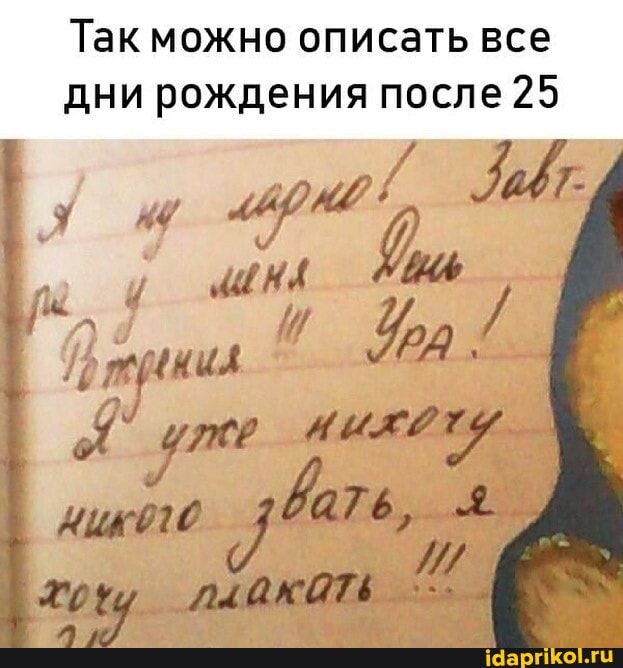 Так можно описать все
дни рождения после 25
Я ну ладно! Завт-
ра у меня День
Рождения !!! УРА!
Я уже нихочу
никого звать, я
хочу плакать !!!
idaprikol.ru